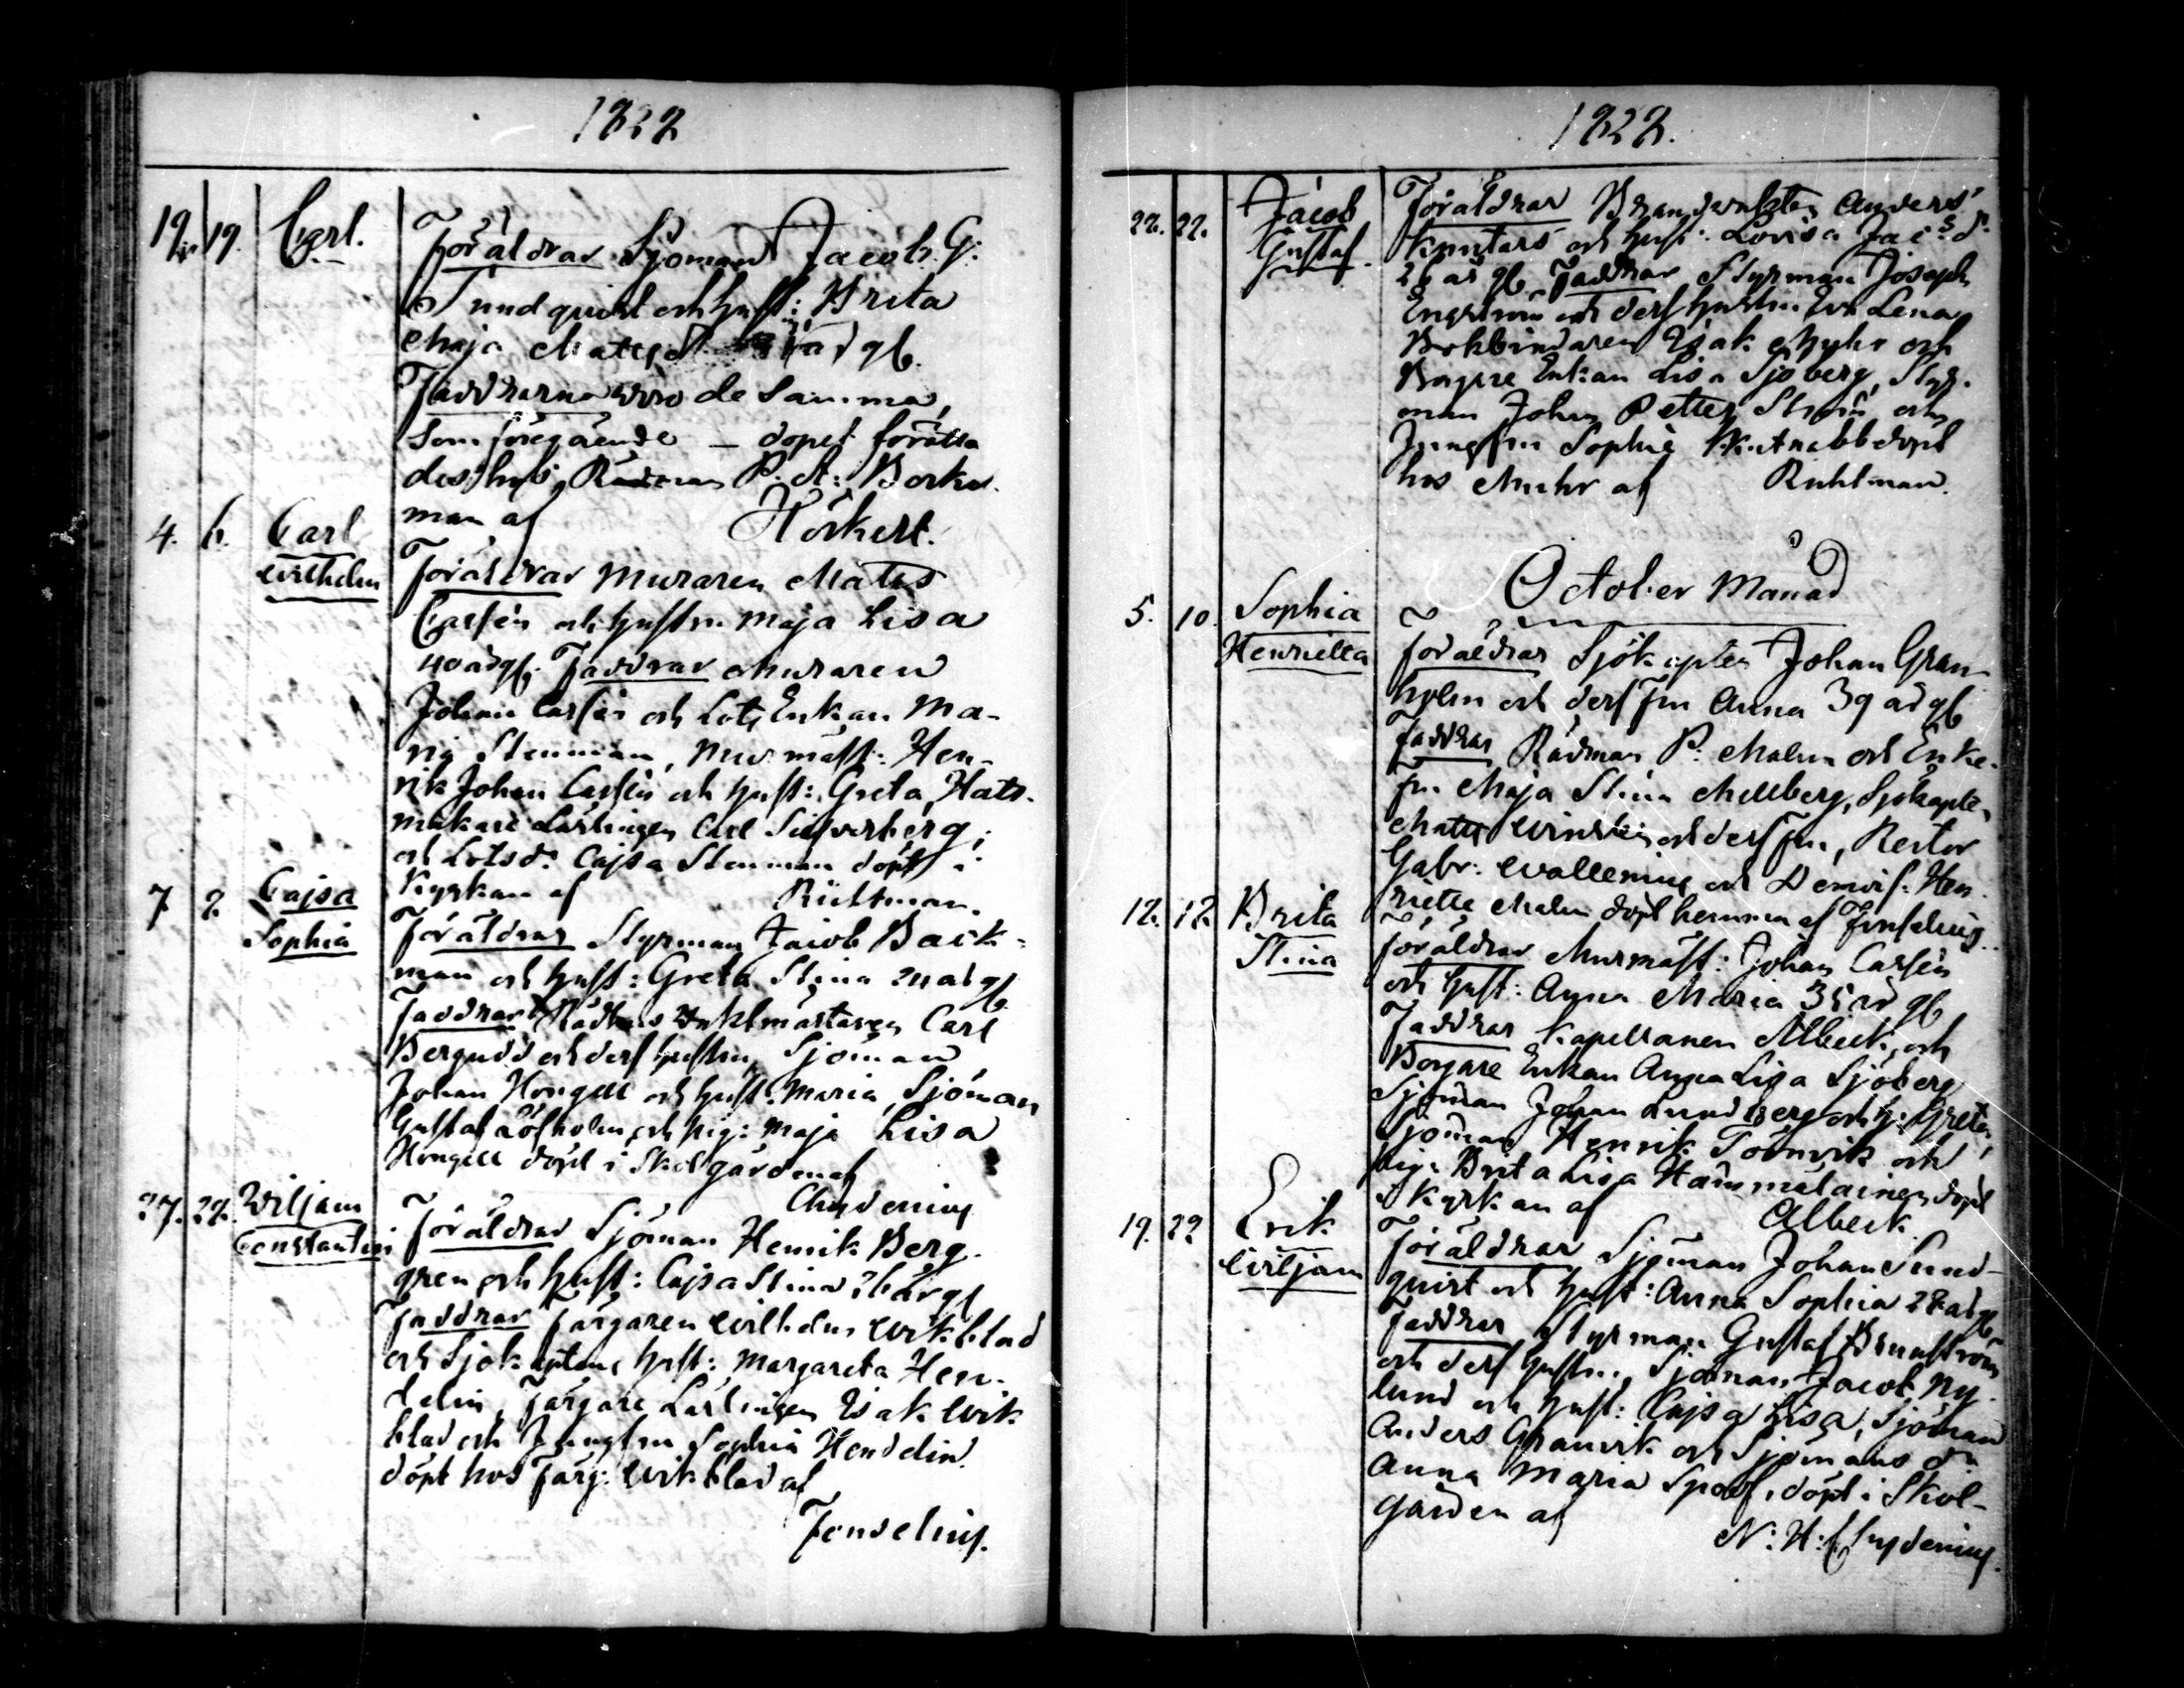 1828
19. 19. Carl. Föräldrar Sjöman Jacob G:
Sundquist och hust: Brita
Maja Matsd gl.
Faddrarna voro de samma,
som föregående – dopet förätta
des hos Rådman P. A: Bork
man af Hörkert.
4. 6. Carl Wilhelm
Föräldrar Muraren Mats
Carlén och hustru Maja Lisa
40 år gl. Faddrar Muraren
Johan Carlén och Lots Enkan Ma-
ria Stenman, Murmäst: Hen-
rik Johan Carlén och hust: Greta, Hatt-
makare Lärlingen Carl Silfverberg,
och Lotsd: Cajsa Stenman döpt i
Kyrkan af
7 8. Cajsa Sophia
Föräldrar Styrman Jacob Back-
man och hust: Greta Stina 24 år gl
Faddrar Rådhus Vaktmästaren Carl
Bergudd och dess hustru, Sjöman
Johan Hongell och hust: Maria, Sjöman
Gustaf Löfholm och pig: Maja Lisa
Hongell döpt i Skolgården af
Chydenius
27. 28. Wiljam Constantin
Föräldrar Sjöman Henrik Berg-
gren och hust: Cajsa Stina år gl
Faddrar färgaren Wilhelm Wikblad
och Sjökaptens hust: Margareta Hen-
delin, Färgare Lärlingen Isak Wik
blad och Jungfru Sophia Hendelin
döpt hos Färg: Wikblad af
Fonselius.
1828.
22. 22. Jacob Gustaf.
Föräldrar Brandvakten Anders
och hust: Lovisa Jacsdr
26 år gl. Faddrar Styrman Joseph
Engström och dess hustru Eva Lena
Bokbindaren Isak Myhr och
Borgare Enkan Lisa Sjöberg, Styr-
man Johan Petter Ström och
Jungfru Sophie döpt
hos Muhr af
October Månad
5. 10. Sophia Henrietta
Föräldrar Sjökapten Johan Gran-
holm och dess Fru Anna 39 år gl
Faddrar Rådman P. Malm och Enke-
fru Maja Stina Mellberg, Sjökapten
Mats och dess fru, Rector
Gabr: Wallenius och Demois: Hen
riette Malm döpt hemma af Fonselius.
12. 12. Brita Stina
Föräldrar Murmäst: Johan Carlén
och hust: Anna Maria 35 år gl
Faddrar Kapellanen Albeck, och
Borgare Enkan Anna Lisa Sjöberg
Sjöman Johan Lundberg och h: Greta,
Sjöman Henrik Törnvik och
pig: Brita Lisa Hämmäläinen döpt
i Kyrkan af Albeck.
19. 22 Erik Wiljam
Föräldrar Sjöman Johan Sund-
quist och hust: Anna Sophia 28 år gl
Faddrar Styrman Gustaf Brunström
och dess hustru, Sjöman Jacob Ny-
lund och hust: Cajsa Lisa, Sjöman
Anders Granvik och Sjömans dr
Anna Maria Spoof, döpt i Skol-
gården af N: H: Chydenius.